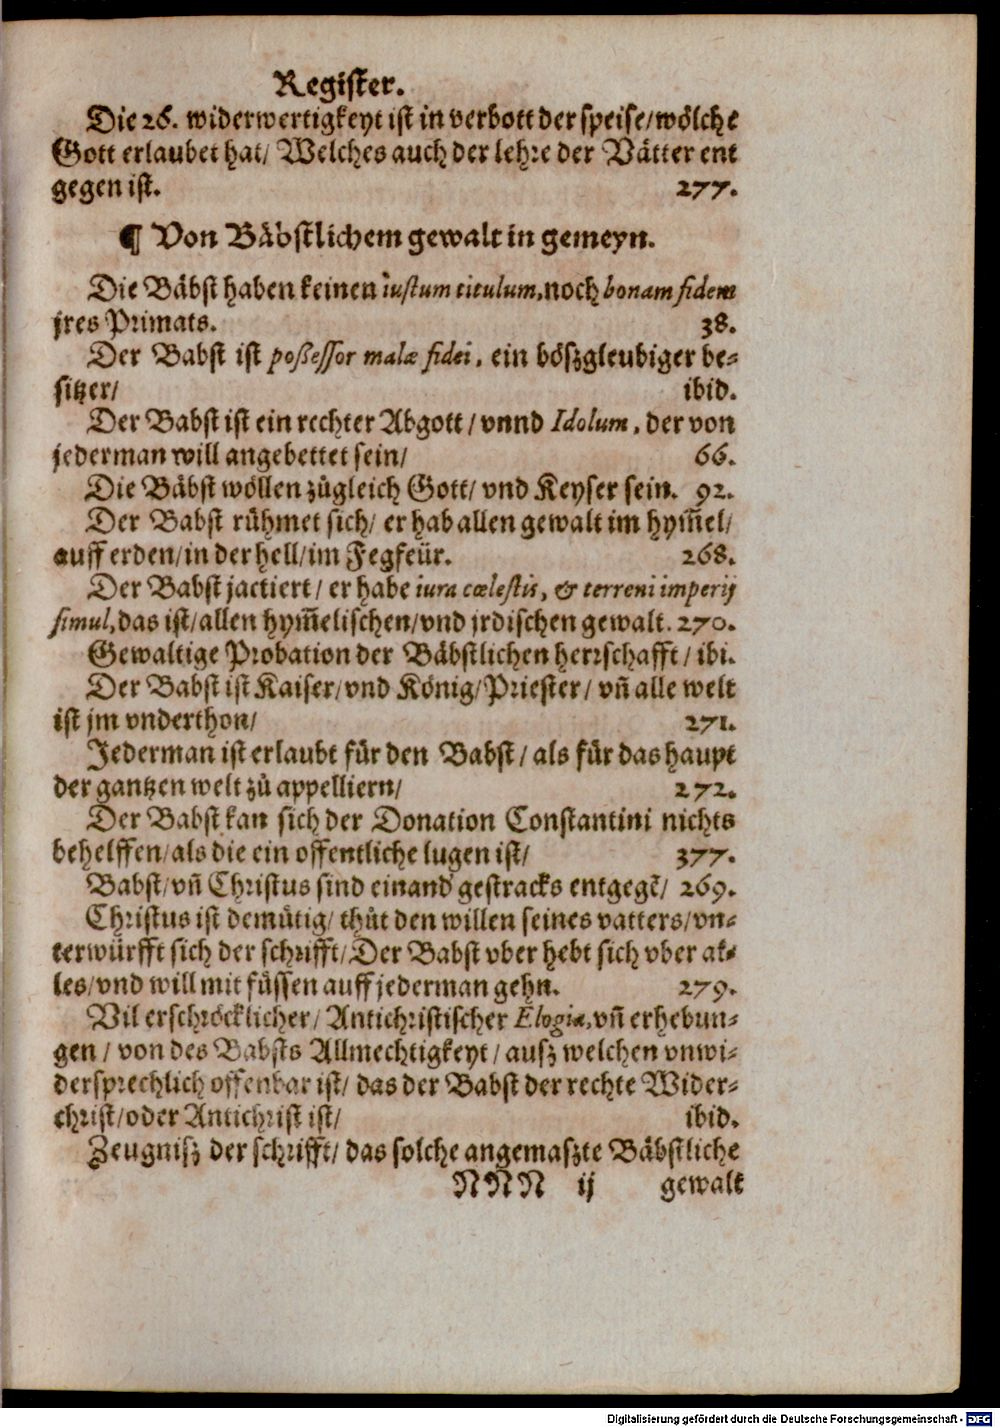 Register.
Die 26. widerwertigkeyt ist in verbott der speise/wölche
Gott erlaubet hat/ Welches auch der lehre der Vätter ent
gegen ist. 277.
¶ Von Bäbstlichem gewalt in gemeyn.
Die Bäbst haben keinen iustum titulum, noch bonam fidem
jres Primats. 38.
Der Babst ist poßessor malæ fidei, ein böszgleubiger be-
sitzer/ ibid.
Der Babst ist ein rechter Abgott / vnnd Idolum, der von
jederman will angebettet sein/ 66.
Die Bäbst wöllen zůgleich Gott/ vnd Keyser sein. 92.
Der Babst rühmet sich/ er hab allen gewalt im hym̃el/
auff erden/in der hell/im Fegfeür. 268.
Der Babst jactiert / er habe iura cœlestis, & terreni imperij
simul, das ist/allen hym̃elischen/vnd jrdischen gewalt. 270.
Gewaltige Probation der Bäbstlichen herrschafft / ibi.
Der Babst ist Kaiser/vnd König/Priester / vñ alle welt
ist jm vnderthon/ 271.
Jederman ist erlaubt für den Babst / als für das haupt
der gantzen welt zů appelliern/ 272.
Der Babst kan sich der Donation Constantini nichts
behelffen/als die ein offentliche lugen ist/ 377.
Babst/vñ Christus sind einand' gestracks entgegẽ/ 269.
Christus ist demütig/ thůt den willen seines vatters/vn-
terwürfft sich der schrifft/Der Babst vber hebt sich vber al-
les/vnd will mit füssen auff jederman gehn. 279.
Vil erschröcklicher/ Antichristischer Elogia, vñ erhebun-
gen / von des Babsts Allmechtigkeyt / ausz welchen vnwi-
dersprechlich offenbar ist/ das der Babst der rechte Wider-
christ/oder Antichrist ist/ ibid.
Zeugnisz der schrifft/ das solche angemaszte Bäbstliche
NNN ij gewalt
Digitalisierung gefördert durch die Deutsche Forschungsgemeinschaft - DFG